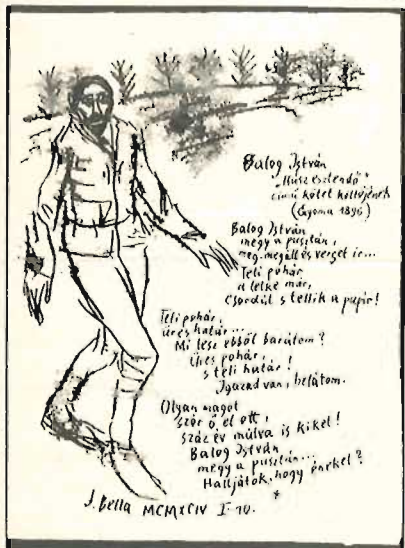 Balog István
"Húsz esztendő"
című kötet költőjének
(Gyoma 1896)
Balog István
megy a pusztán,
meg-megáll és verset ír...
Teli pohár
a lelke már,
csordúl s tellik a papír!
Teli pohár,
üres határ...
Mi lesz ebből barátom?
Üres pohár,
s teli határ!
Igazad van, belátom.
Olyan magot
szór ő el ott,
száz év múlva is kikel!
Balog István
megy a pusztán...
Halljátok, hogy énekel?
*
J. Bella MCMXCIV I. 10.